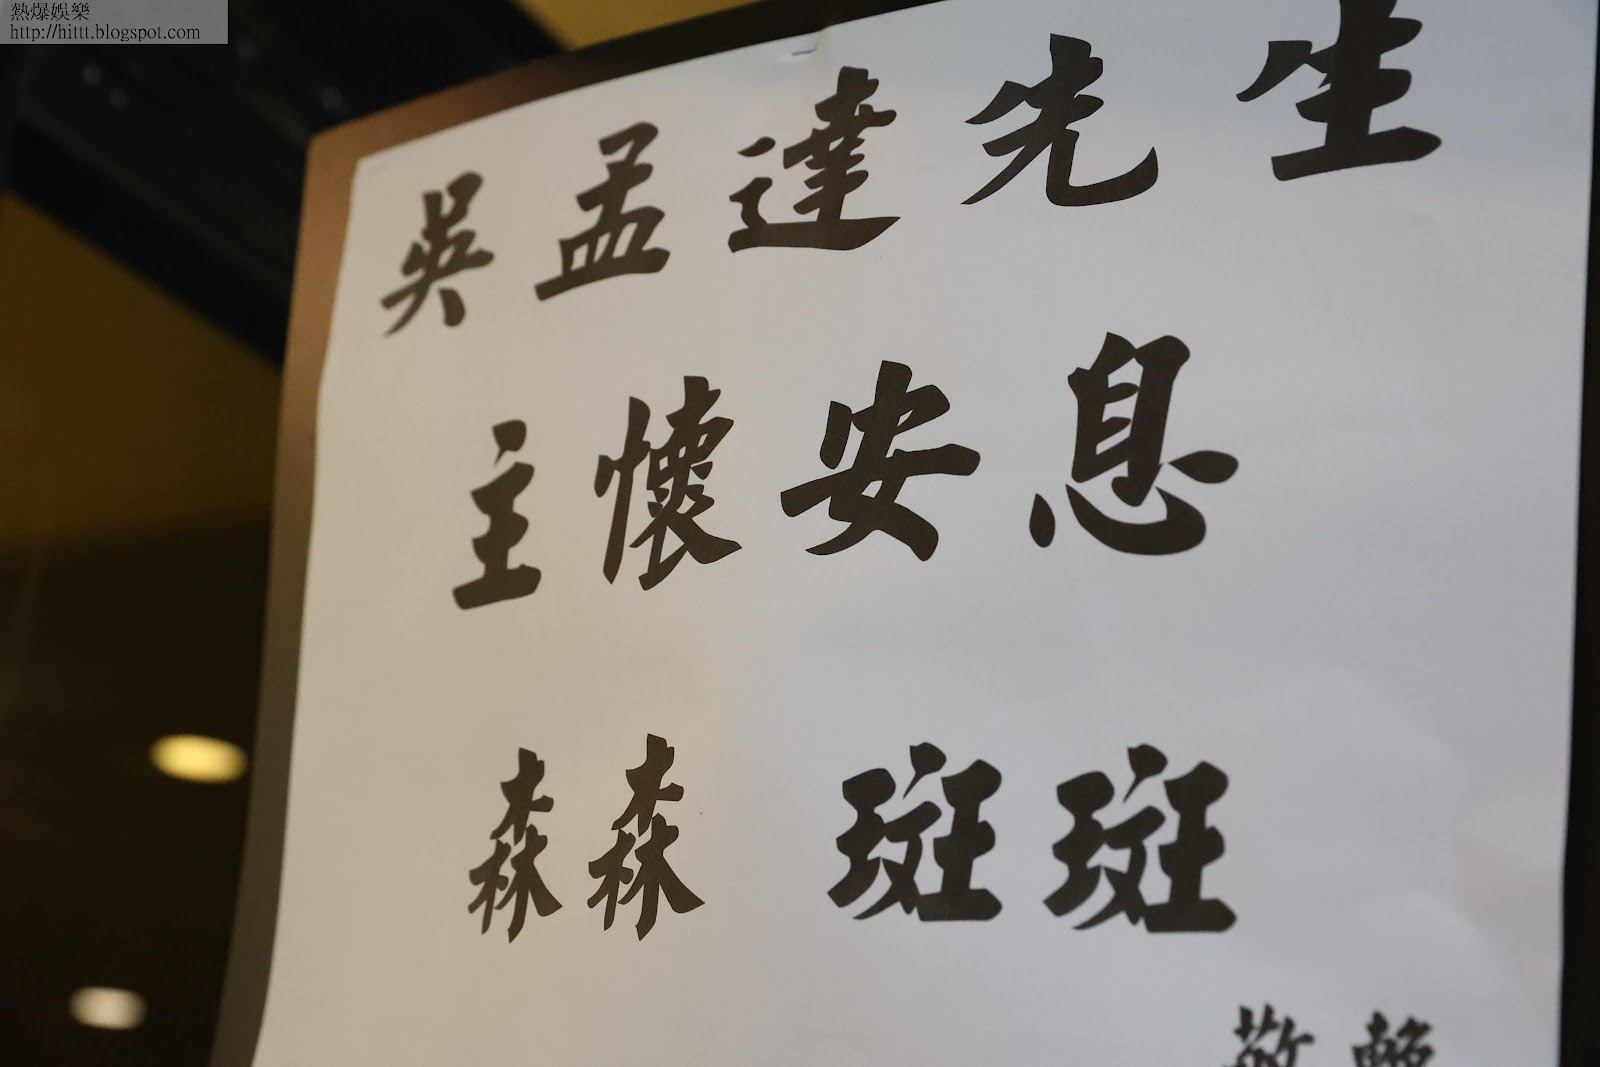 熱爆娛樂
http://hittt.blogspot.com
吳孟達先生
主懷安息
森森 斑斑
敬輓